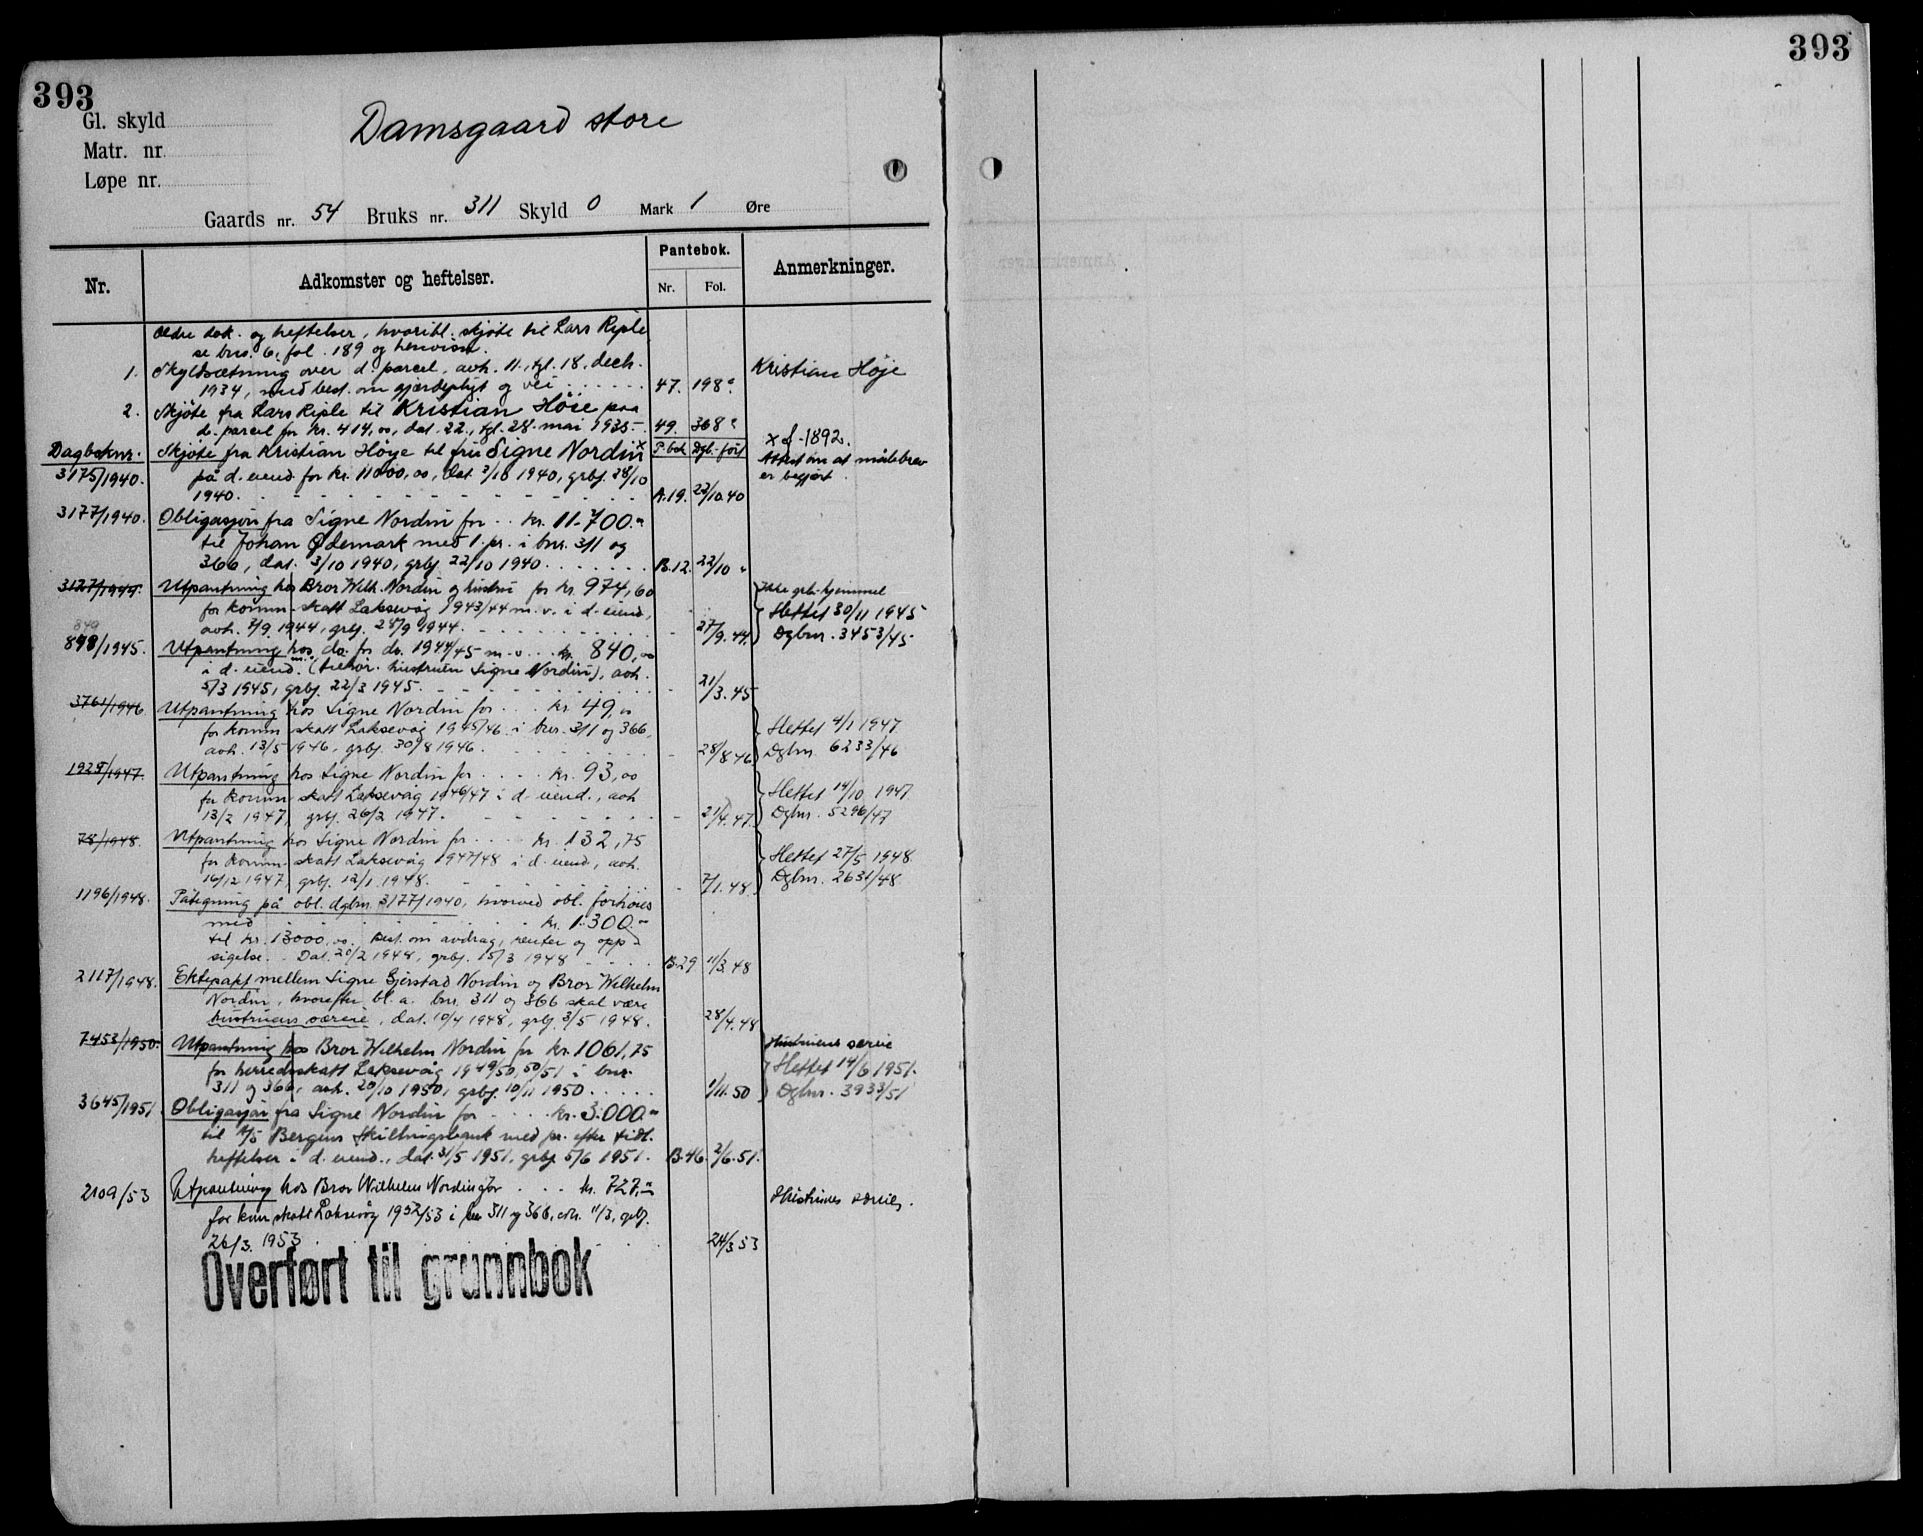 393
393
Gl. skyld
Damsgaard store
Matr. nr.
Løpe nr.
Gaards nr. 54 Bruks nr. 311 Skyld 0 Mark 1 Øre
Nr. Adkomster og heftelser. Pantebok. Anmerkninger.
Nr. Fol.
Ældre dok. og heftelser, hvoribl. skjøte til Lars Riple
se bnr. 6, fol. 189 og henvisn.
1. Skyldsætning over d. parcel, avh. 11., tgl. 18. decb. Kristian Höje
1934, med best. om gjærdepligt og vei 47. 198
2. Skjøte fra Lars Riple til Kristian Höie paa
d. parcel for kr. 414,00, dat. 22., tgl. 28. mai 1935 49. 368
Dagboknr. Skjøte fra Kristian Höye til fru Signe Nordin x P-bok Dgb.-ført x f. 1892.
3175/1940. på d. eiend. for kr. 11000,00, dat. 3/10 1940, grbf. 28/10 Attest om at målebrev
1940. A.19. 22/10.40 er begjært.
3177/1940. Obligasjon fra Signe Nordin for kr. 11.700.-
til Johan Ødemark med 1. pr. i bnr. 311 og
366, dat. 3/10 1940, grbf. 22/10 1940. B.12. 22/10 "
3127/1944. Utpantning hos Bror Wilh. Nordin og hustru for kr. 974,60 Ikke grb.-hjemmel
for komm. skatt Laksevåg 1943/44 m.v. i d. eiend., Slettet 30/11 1945
avh. 7/9 1944, grbf. 28/9 1944. 27/9.44. Dgbnr. 3453/45
849
848/1945. Utpantning hos do. for do. 1944/45 m.v. kr. 840,00
i d. eiend. (tilhør. hustruen Signe Nordin), avh.
5/3 1945, grbf. 22/3 1945. 21/3.45
3761/1946. Utpantning hos Signe Nordin for kr. 49,00
for komm. skatt Laksevåg 1945/46 i bnr. 311 og 366, Slettet 4/1 1947
avh. 13/5 1946, grbf. 30/8 1946. 28/8.46. Dgbnr. 6233/46
1925/1947. Utpantning hos Signe Nordin for kr. 93,00
for komm. skatt Laksevåg 1946/47 i d. eiend., avh. Slettet 14/10 1947
13/2 1947, grbf. 26/2 1947. 21/4.47. Dgbnr. 5296/47
78/1948. Utpantning hos Signe Nordin for kr. 132,75
for komm. skatt Laksevåg 1947/48 i d. eiend., avh. Slettet 27/5 1948
16/12 1947, grbf. 12/1 1948. 7/1.48. Dgbnr. 2631/48
1196/1948. Påtegning på obl. dgbnr. 3177/1940, hvorved obl. forhøies
med kr. 1.300.-
til kr. 13000,00. Best. om avdrag, renter og opp-
sigelse. Dat. 20/2 1948, grbf. 15/3 1948 B.29 11/3.48
2117/1948. Ektepakt mellem Signe Gjerstad Nordin og Bror Wilhelm
Nordin, hvorefter bl.a. bnr. 311 og 366 skal være
hustruens særeie, dat. 10/4 1948, grbf. 3/5 1948. 28/4.48
7453/1950. Utpantning hos Bror Wilhelm Nordin for kr. 1061,75 Hustruens særeie
for herredsskatt Laksevåg 1949/50, 50/51 i bnr. Slettet 14/6 1951.
311 og 366, avh. 20/10 1950, grbf. 10/11 1950. 1/11.50 Dgbnr. 3933/51
3645/1951. Obligasjon fra Signe Nordin for kr. 3.000.-
til A/S Bergens Skillingsbank med pr. efter tidl.
heftelser i d. eiend., dat. 31/5 1951, grbf. 5/6 1951. B.46. 2/6.51.
2109/53 Utpantning hos Bror Wilhelm Nordin for kr. 727,- Hustruens særeie.
for kom skatt Laksevåg 1952/53 i bnr 311 og 366, avh. 11/3, grbf.
26/3. 1953 24/3 53
Overført til grunnbok